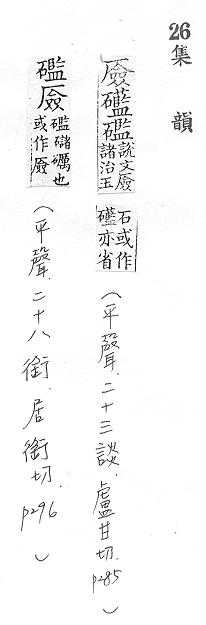 26集韻
厱礷礛說文厱諸治玉
石或作礷亦省
(平聲.二十三談.盧甘切.p285)
礛厱礛䃴礪也
或作厱
(平聲.二十八銜.居銜切.p296)